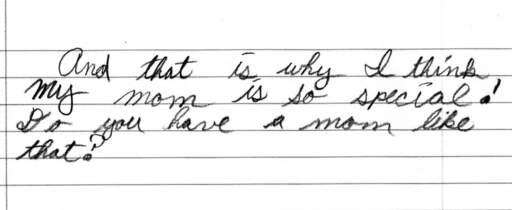 And that is why I think
my mom is so special!
Do you have a mom like
that?